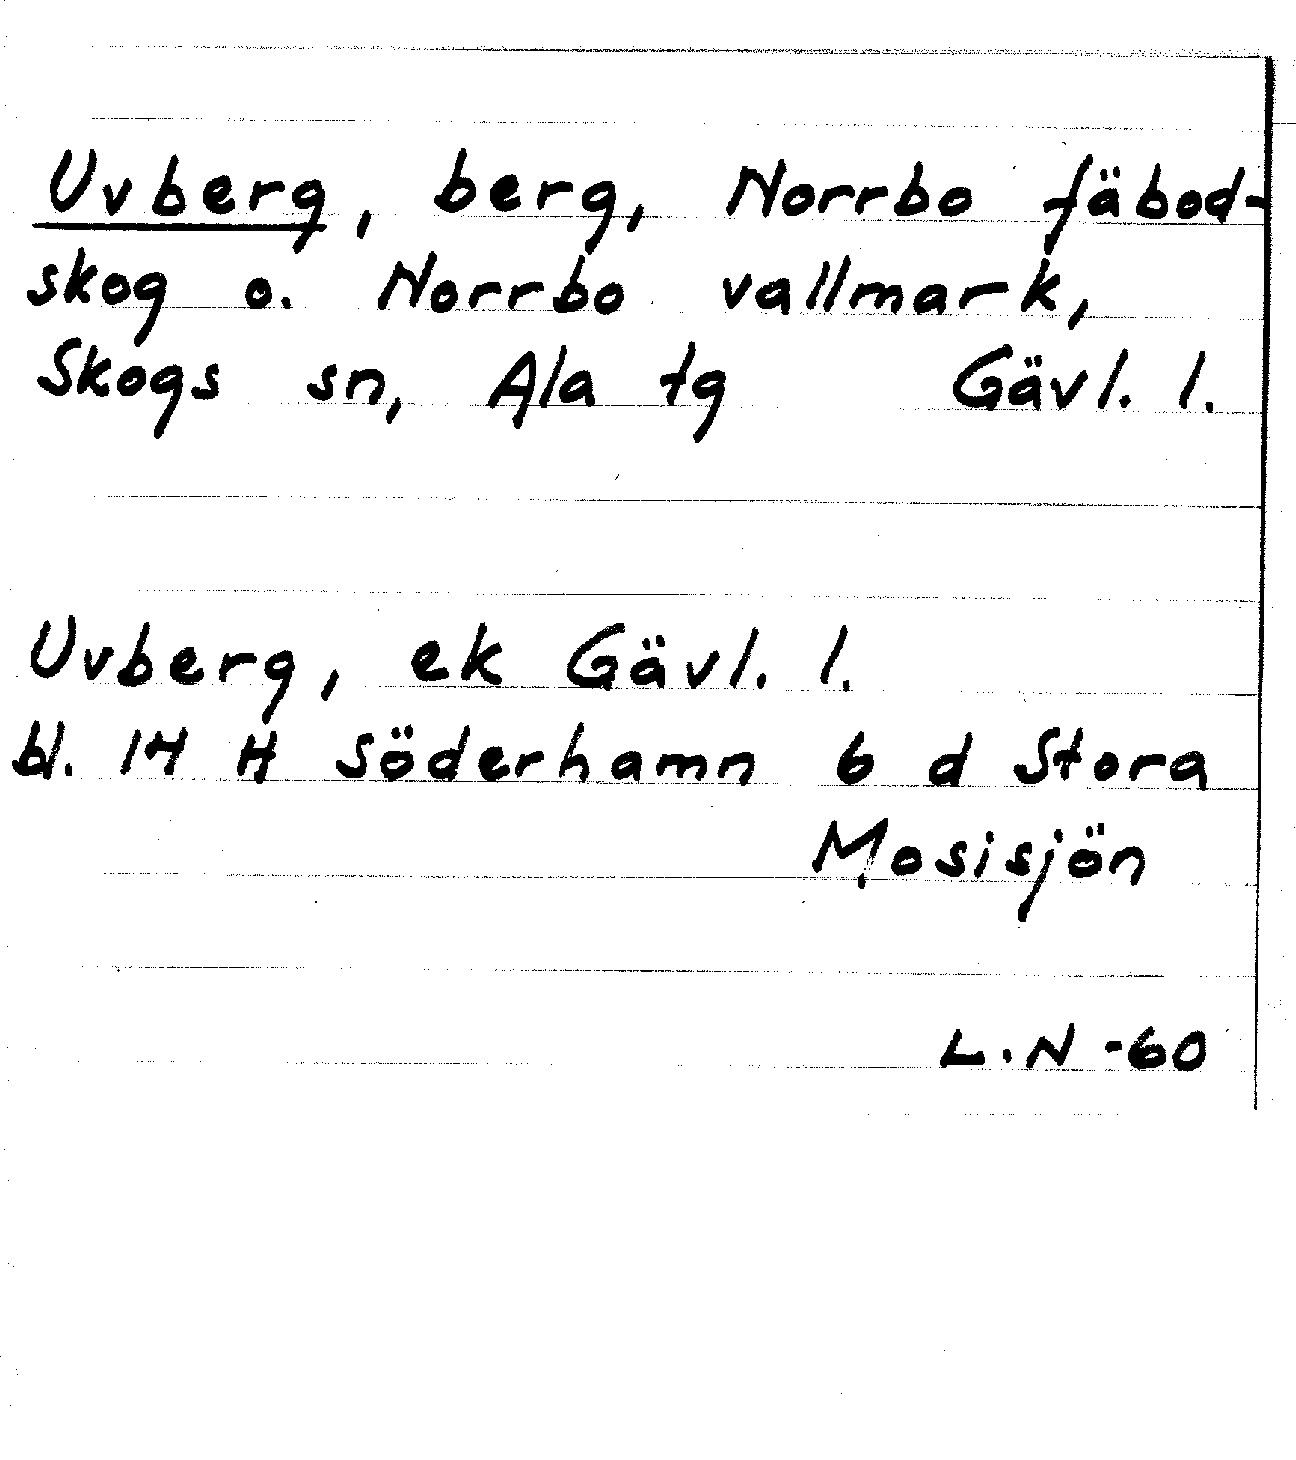 Uvberg, berg, Norrbo fäbod-
skog o. Norrbo vallmark,
Skogs sn, Ala tg Gävl. l.
Uvberg, ek Gävl. l.
bl. 14 H Söderhamn 6 d Stora
Mosisjön
L.N -60